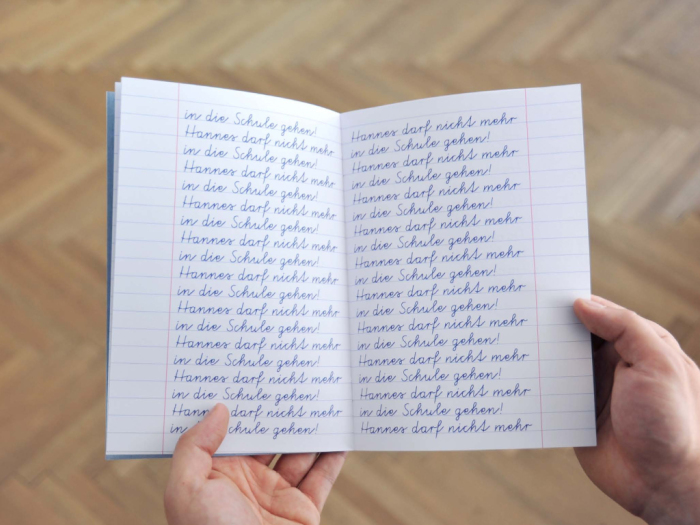 in die Schule gehen!
Hannes darf nicht mehr
in die Schule gehen!
Hannes darf nicht mehr
in die Schule gehen!
Hannes darf nicht mehr
in die Schule gehen!
Hannes darf nicht mehr
in die Schule gehen!
Hannes darf nicht mehr
in die Schule gehen!
Hannes darf nicht mehr
in die Schule gehen!
Hannes darf nicht mehr
in die Schule gehen!
Hannes darf nicht mehr
in die Schule gehen!
Hannes darf nicht mehr
in die Schule gehen!
Hannes darf nicht mehr
in die Schule gehen!
Hannes darf nicht mehr
in die Schule gehen!
Hannes darf nicht mehr
in die Schule gehen!
Hannes darf nicht mehr
in die Schule gehen!
Hannes darf nicht mehr
in die Schule gehen!
Hannes darf nicht mehr
in die Schule gehen!
Hannes darf nicht mehr
in die Schule gehen!
Hannes darf nicht mehr
in die Schule gehen!
Hannes darf nicht mehr
in die Schule gehen!
Hannes darf nicht mehr